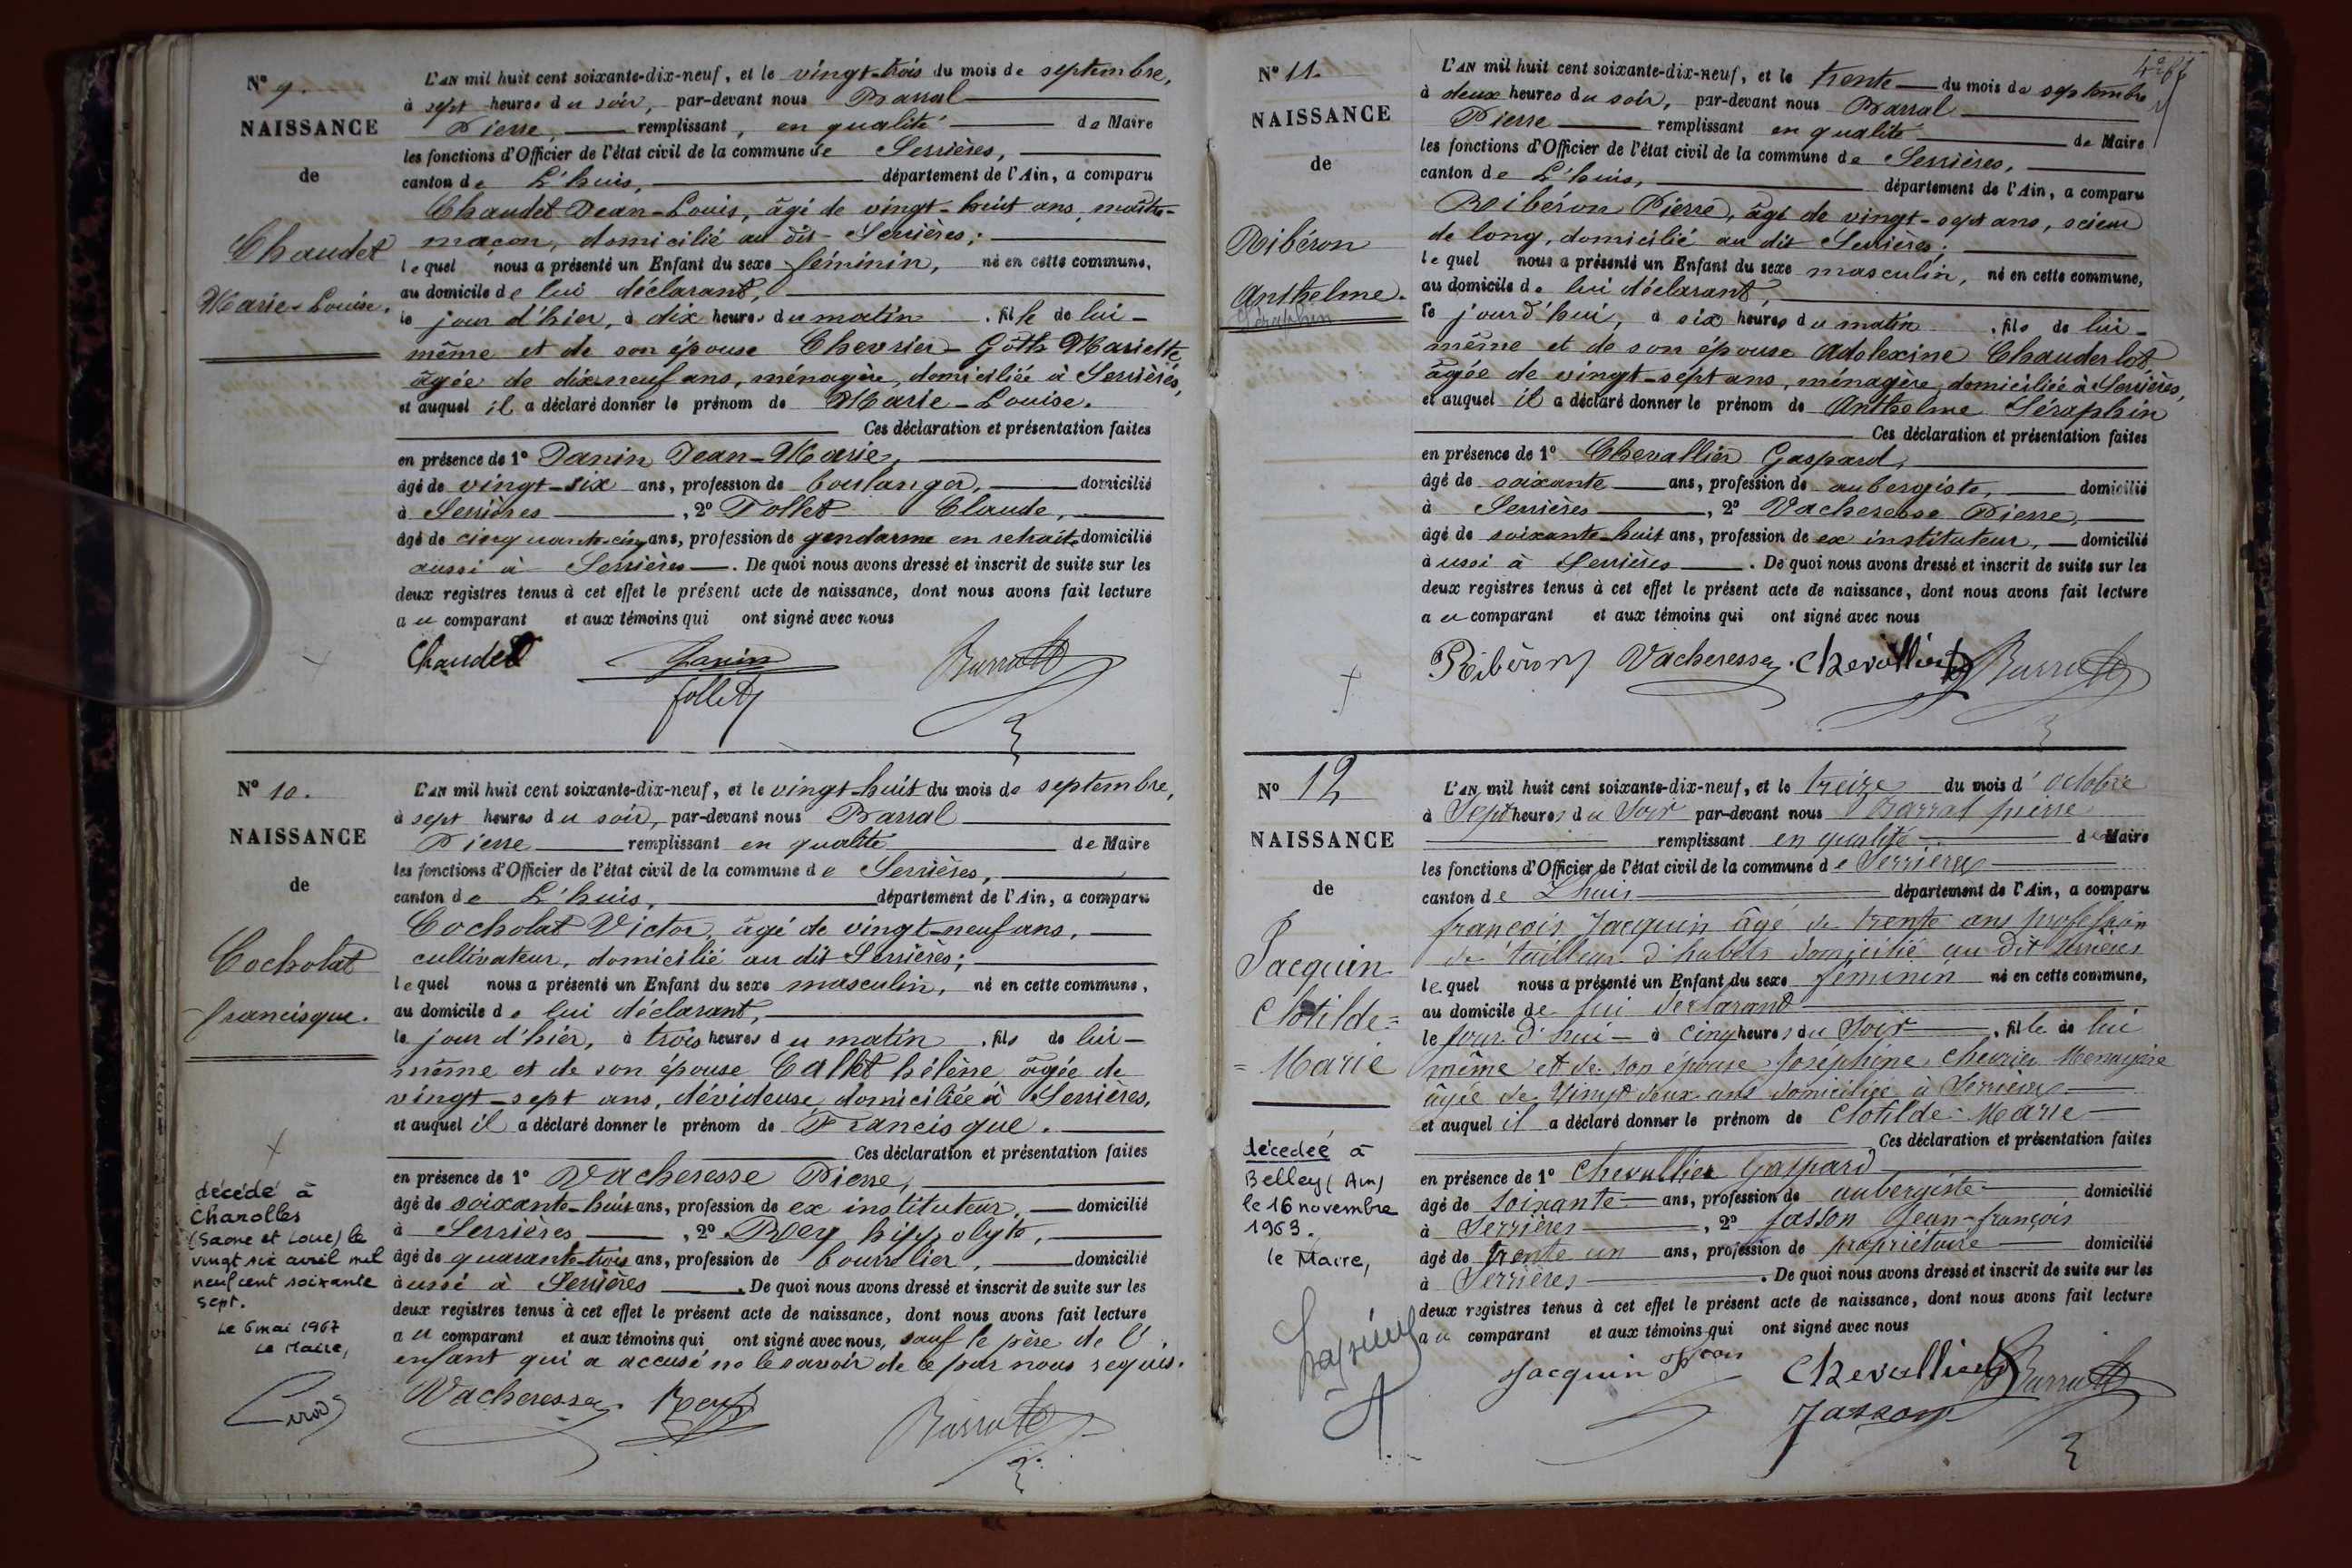 N° 9.
NAISSANCE
de
Chaudet
Marie-Louise.
L'AN mil huit cent soixante-dix-neuf, et le vingt-trois du mois de septembre,
à sept heures du soir, par-devant nous Barral
Pierre, remplissant, en qualité de Maire
les fonctions d'Officier de l'état civil de la commune de Serrières,
canton de L'huis, département de l'Ain, a comparu
Chaudet Jean-Louis, âgé de vingt-huit ans, maître-
maçon, domicilié au dit Serrières;
lequel nous a présenté un Enfant du sexe féminin, né en cette commune,
au domicile de lui déclarant,
le jour d'hier, à dix heures du matin, fille de lui-
même et de son épouse Chevrier-Goth Mariette,
âgée de dix-neuf ans, ménagère, domiciliée à Serrières,
et auquel il a déclaré donner le prénom de Marie-Louise.
Ces déclaration et présentation faites
en présence de 1° Janin Jean-Marie,
âgé de vingt-six ans, profession de boulanger, domicilié
à Serrières, 2° Follet Claude,
âgé de cinquante-cinq ans, profession de gendarme en retraite domicilié
aussi à Serrières. De quoi nous avons dressé et inscrit de suite sur les
deux registres tenus à cet effet le présent acte de naissance, dont nous avons fait lecture
au comparant et aux témoins qui ont signé avec nous
Chaudet Janin Barral
follet
N° 10.
NAISSANCE
de
Cocholat
francisque.
L'AN mil huit cent soixante-dix-neuf, et le vingt-huit du mois de septembre,
à sept heures du soir, par-devant nous Barral
Pierre remplissant en qualité de Maire
les fonctions d'Officier de l'état civil de la commune de Serrières,
canton de L'huis, département de l'Ain, a comparu
Cocholat Victor, âgé de vingt-neuf ans,
cultivateur, domicilié au dit Serrières;
lequel nous a présenté un Enfant du sexe masculin, né en cette commune,
au domicile de lui déclarant,
le jour d'hier, à trois heures du matin, fils de lui-
même et de son épouse Callet hélène âgée de
vingt-sept ans, dévideuse domiciliée à Serrières,
et auquel il a déclaré donner le prénom de Francisque.
Ces déclaration et présentation faites
en présence de 1° Vacheresse Pierre,
âgé de soixante-huit ans, profession de ex instituteur, domicilié
à Serrières, 2° Rey hippolyte,
âgé de quarante-trois ans, profession de bourrelier, domicilié
aussi à Serrières. De quoi nous avons dressé et inscrit de suite sur les
deux registres tenus à cet effet le présent acte de naissance, dont nous avons fait lecture
au comparant et aux témoins qui ont signé avec nous, sauf le père de l'
enfant qui a accusé ne le savoir de ce par nous requis.
Vacheresse Rey Barral
décédé à
Charolles
(Saone et Loire) le
vingt six avril mil
neuf cent soixante
sept.
Le 6 mai 1967
Le Maire,
N° 11.
NAISSANCE
de
Ribéron
Anthelme.
Séraphin
L'AN mil huit cent soixante-dix-neuf, et le trente du mois de septembre
à deux heures du soir, par-devant nous Barral
Pierre remplissant en qualité de Maire
les fonctions d'Officier de l'état civil de la commune de Serrières,
canton de L'huis, département de l'Ain, a comparu
Ribéron Pierre, âgé de vingt-sept ans, scieur
de long, domicilié au dit Serrières;
lequel nous a présenté un Enfant du sexe masculin, né en cette commune,
au domicile de lui déclarant,
le jourd'hui, à six heures du matin, fils de lui-
même et de son épouse Adolexine Chauderlot,
âgée de vingt-sept ans, ménagère, domiciliée à Serrières,
et auquel il a déclaré donner le prénom de Anthelme Séraphin
Ces déclaration et présentation faites
en présence de 1° Chevallier Gaspard,
âgé de soixante ans, profession de aubergiste, domicilié
à Serrières, 2° Vacheresse Pierre,
âgé de soixante-huit ans, profession de ex instituteur, domicilié
aussi à Serrières. De quoi nous avons dressé et inscrit de suite sur les
deux registres tenus à cet effet le présent acte de naissance, dont nous avons fait lecture
au comparant et aux témoins qui ont signé avec nous
Ribéron Vacheresse Chevallier Barral
N° 12
NAISSANCE
de
Jacquin
Clotilde=
=Marie
L'AN mil huit cent soixante-dix-neuf, et le treize du mois d'octobre
à Sept heures du Soir par-devant nous Barral pierre
remplissant en qualité de Maire
les fonctions d'Officier de l'état civil de la commune de Serrières
canton de Lhuis département de l'Ain, a comparu
françois Jacquin âgé de trente ans profession
de tailleur d'habits domicilié au dit Serrières
lequel nous a présenté un Enfant du sexe féminin né en cette commune,
au domicile de lui déclarant
le jour d'hui à cinq heures du Soir, fille de lui
même et de son épouse Joséphine Chevrier Menagère
âgée de Vingt deux ans domiciliée à Serrières
et auquel il a déclaré donner le prénom de Clotilde-Marie
Ces déclaration et présentation faites
en présence de 1° Chevallier Gaspard
âgé de Soixante ans, profession de aubergiste domicilié
à Serrières, 2° Jasson Jean-françois
âgé de trente un ans, profession de propriétaire domicilié
à Serrières. De quoi nous avons dressé et inscrit de suite sur les
deux registres tenus à cet effet le présent acte de naissance, dont nous avons fait lecture
au comparant et aux témoins qui ont signé avec nous
Jacquin fcois Chevallier Barral
Jasson
décedée à
Belley (Ain)
le 16 novembre
1963.
le Maire,